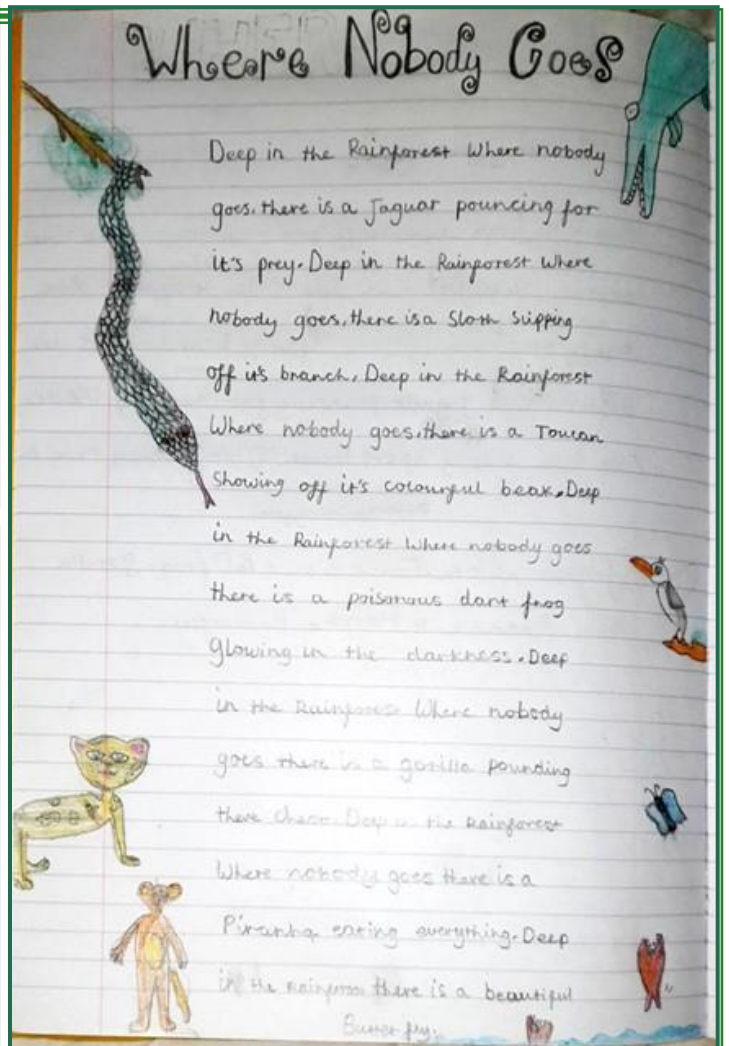 Where Nobody Goes
Deep in the Rainforest Where nobody
goes, there is a Jaguar pouncing for
it's prey. Deep in the Rainforest Where
nobody goes, there is a Sloth Slipping
off it's branch, Deep in the Rainforest
Where nobody goes, there is a Toucan
Showing off it's colourful beak. Deep
in the Rainforest Where nobody goes
there is a poisonous dart frog
glowing in the darkness. Deep
in the Rainforest Where nobody
goes there is a gorilla pounding
there Chest. Deep in the Rainforest
Where nobody goes there is a
Piranha eating everything. Deep
in the there is a beautiful